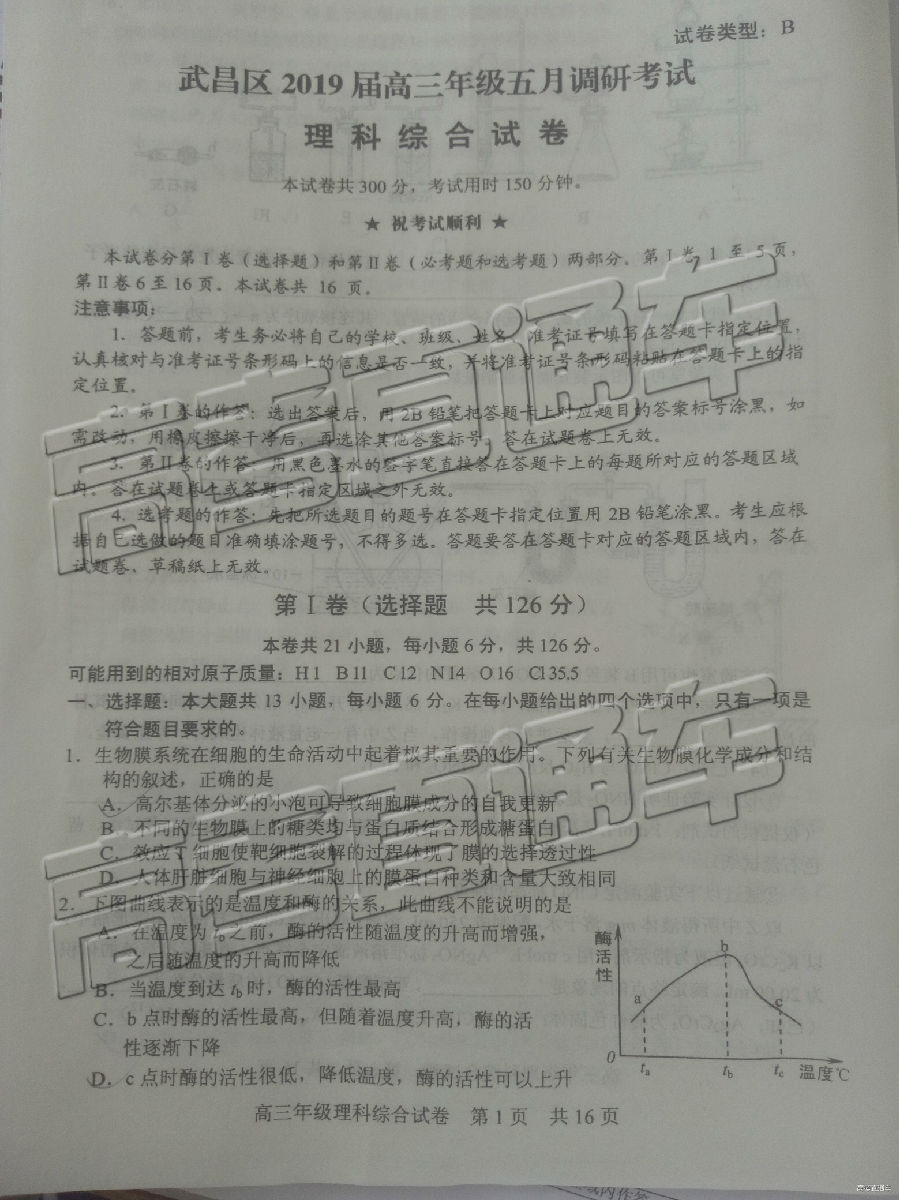 试卷类型：B
武昌区 2019 届高三年级五月调研考试
理科综合试卷
本试卷共 300 分，考试用时 150 分钟。
★ 祝考试顺利 ★
本试卷分第Ⅰ卷（选择题）和第Ⅱ卷（必考题和选考题）两部分。第Ⅰ卷 1 至 5 页，
第Ⅱ卷 6 至 16 页。本试卷共 16 页。
注意事项：
1．答题前，考生务必将自己的学校、班级、姓名、准考证号填写在答题卡指定位置，
认真核对与准考证号条形码上的信息是否一致，并将准考证号条形码粘贴在答题卡上的指
定位置。
2．第Ⅰ卷的作答：选出答案后，用 2B 铅笔把答题卡上对应题目的答案标号涂黑，如
需改动，用橡皮擦擦干净后，再选涂其他答案标号。答在试题卷上无效。
3．第Ⅱ卷的作答：用黑色墨水的签字笔直接答在答题卡上的每题所对应的答题区域
内。答在试题卷上或答题卡指定区域之外无效。
4．选考题的作答：先把所选题目的题号在答题卡指定位置用 2B 铅笔涂黑。考生应根
据自己选做的题目准确填涂题号，不得多选。答题要答在答题卡对应的答题区域内，答在
试题卷、草稿纸上无效。
第Ⅰ卷（选择题 共 126 分）
本卷共 21 小题，每小题 6 分，共 126 分。
可能用到的相对原子质量：H 1 B 11 C 12 N 14 O 16 Cl 35.5
一、选择题：本大题共 13 小题，每小题 6 分。在每小题给出的四个选项中，只有一项是
符合题目要求的。
1．生物膜系统在细胞的生命活动中起着极其重要的作用。下列有关生物膜化学成分和结
构的叙述，正确的是
A．高尔基体分泌的小泡可导致细胞膜成分的自我更新
B．不同的生物膜上的糖类均与蛋白质结合形成糖蛋白
C．效应 T 细胞使靶细胞裂解的过程体现了膜的选择透过性
D．人体肝脏细胞与神经细胞上的膜蛋白种类和含量大致相同
2．下图曲线表示的是温度和酶的关系，此曲线不能说明的是
A．在温度为 tb 之前，酶的活性随温度的升高而增强，
之后随温度的升高而降低
B．当温度到达 tb 时，酶的活性最高
C．b 点时酶的活性最高，但随着温度升高，酶的活
性逐渐下降
D．c 点时酶的活性很低，降低温度，酶的活性可以上升
酶活性
a
b
c
0
ta
tb
tc
温度℃
高三年级理科综合试卷 第 1 页 共 16 页
高考直通车
高考直通车